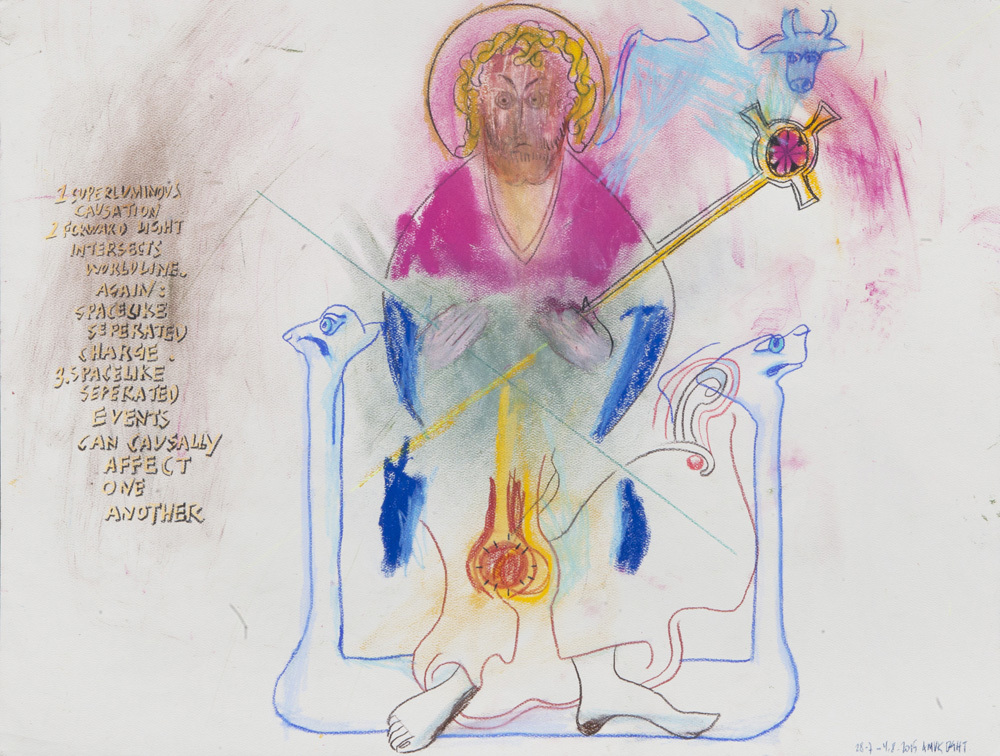 1 SUPERLUMINOUS
CAUSATION
2 FORWARD LIGHT
INTERSECTS
WORLDLINE.
AGAIN:
SPACELIKE
SEPERATED
CHARGE.
3. SPACELIKE
SEPERATED
EVENTS
CAN CAUSALLY
AFFECT
ONE
ANOTHER
28-7 - 4.8.2015